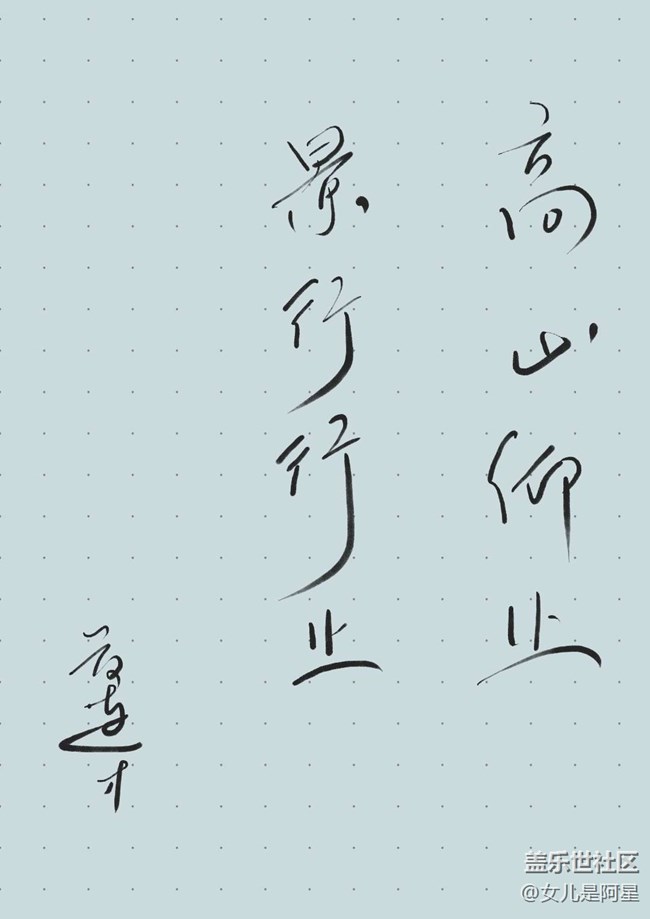 高山仰止
景行行止
盖乐世社区
@女儿是阿星